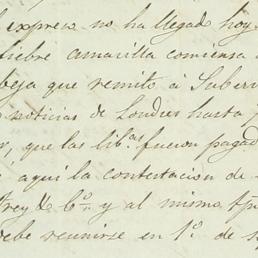 expreso no ha llegado hoy
fiebre amarilla comiensa
que remito á
noticias de Londres hasta
que las lib.as fueron pagad
aquí la contestacion de
Frey & C.o y al mismo tpo
debe reunirse en 1.o de